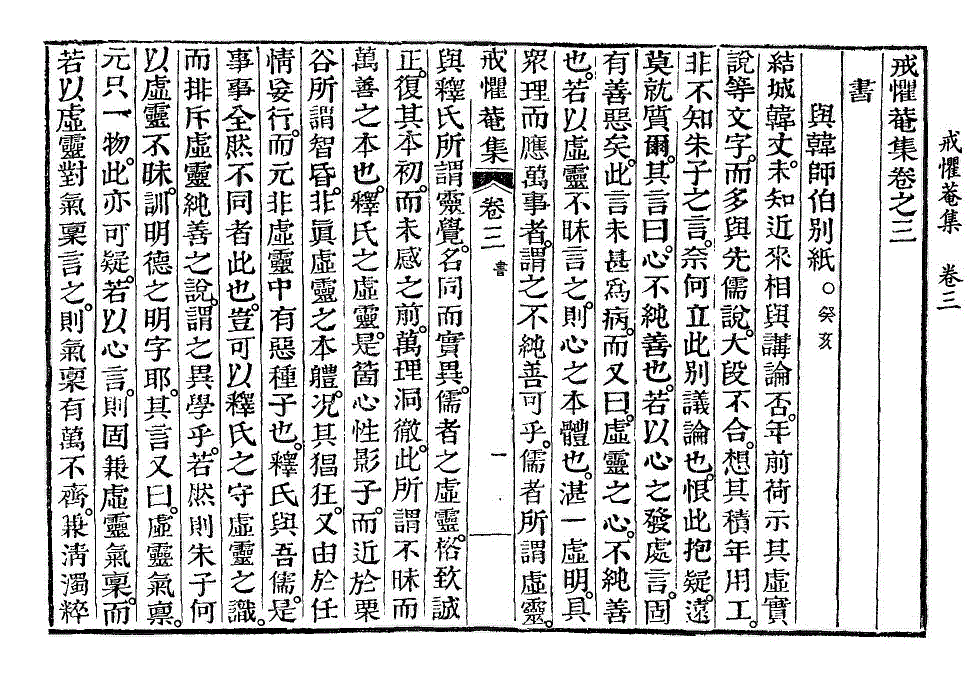 戒懼菴集　卷三
戒懼菴集卷之三
書
與韓師伯別紙。癸亥
結城韓丈。未知近來相與講論否。年前荷示其虛實
說等文字。而多與先儒說。大段不合。想其積年用工。
非不知朱子之言。奈何立此別議論也。恨此抱疑。遠
莫就質爾。其言曰。心不純善也。若以心之發處言。固
有善惡矣。此言未甚爲病。而又曰。虛靈之心。不純善
也。若以虛靈不昧言之。則心之本體也。湛一虛明。具
眾理而應萬事者。謂之不純善可乎。儒者所謂虛靈。
戒懼菴集　卷三　書　一
與釋氏所謂靈覺。名同而實異。儒者之虛靈。格致誠
正。復其本初。而未感之前。萬理洞徹。此所謂不昧而
萬善之本也。釋氏之虛靈。是箇心性影子。而近於栗
谷所謂智昏。非眞虛靈之本軆。况其猖狂。又由於任
情妄行。而元非虛靈中有惡種子也。釋氏與吾儒。是
事事全然不同者此也。豈可以釋氏之守虛靈之識。
而排斥虛靈純善之說。謂之異學乎。若然則朱子何
以虛靈不昧。訓明德之明字耶。其言又曰。虛靈氣禀。
元只一物。此亦可疑。若以心言。則固兼虛靈氣禀。而
若以虛靈對氣禀言之。則氣禀有萬不齊。兼淸濁粹